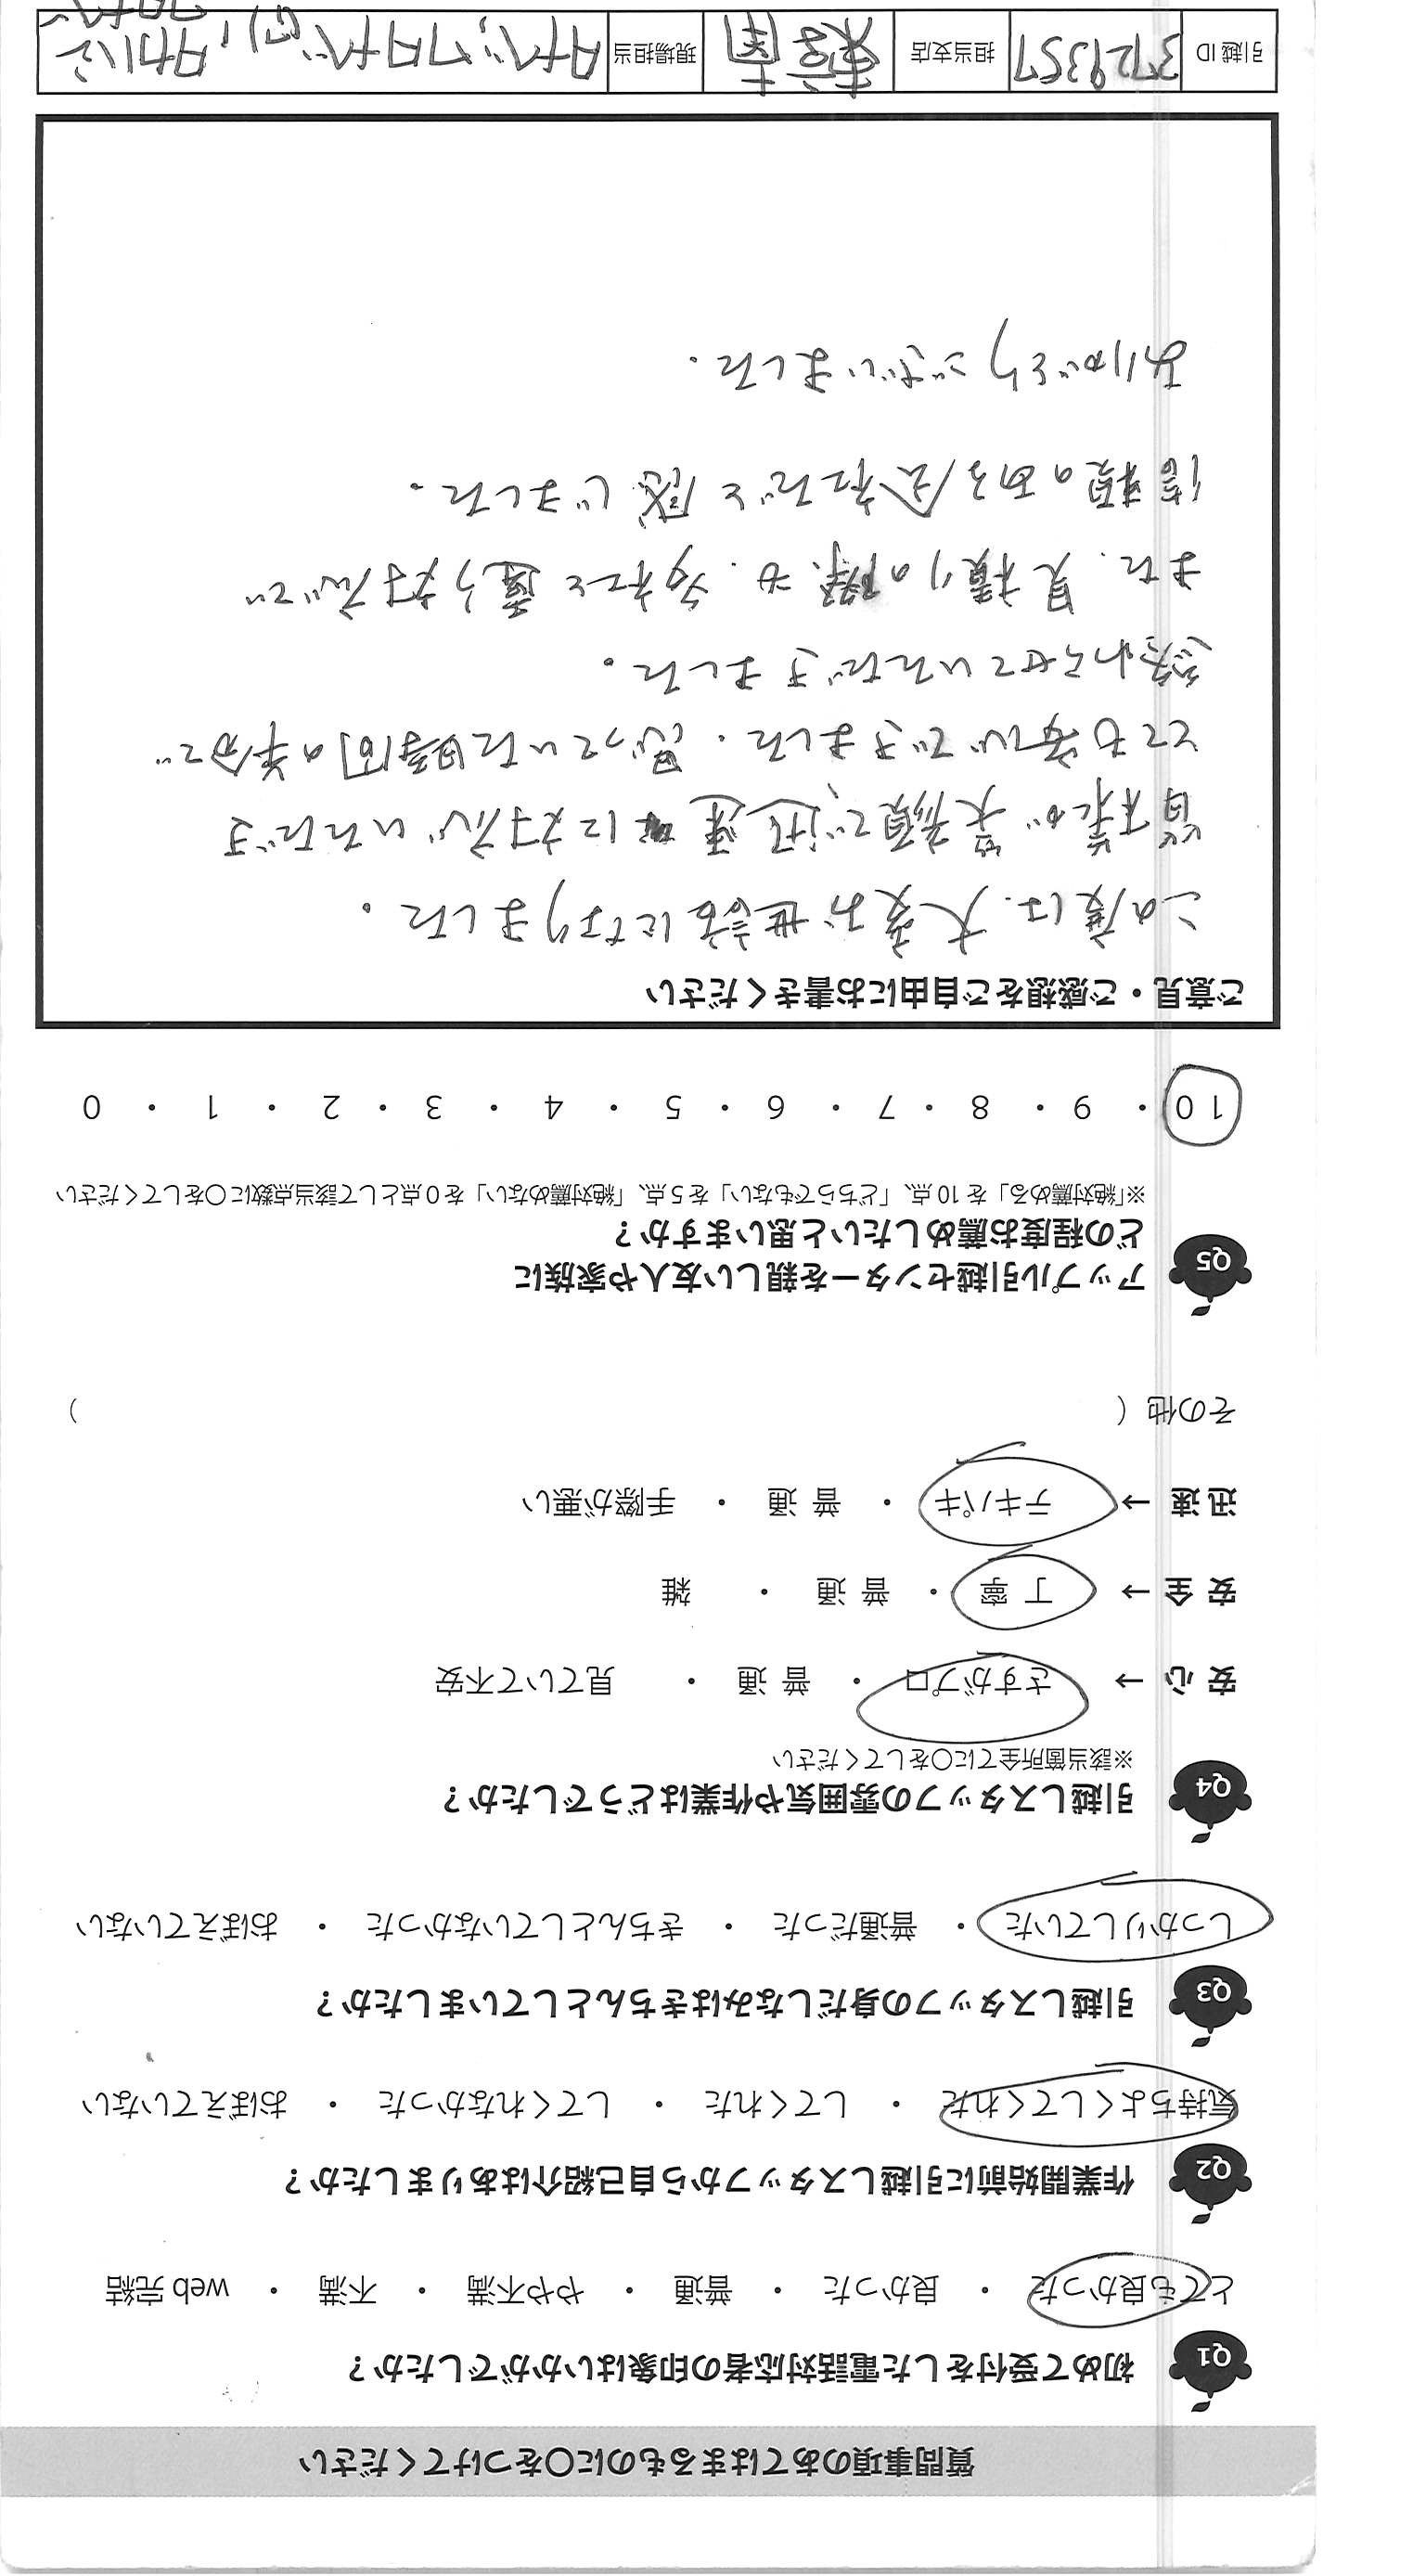 質問事項のあてはまるものに〇をつけてください
Q1 初めて受付をした電話対応者の印象はいかがでしたか？
とても良かった ・ 良かった ・ 普通 ・ やや不満 ・ 不満 ・ web 完結
Q2 作業開始前に引越しスタッフから自己紹介はありましたか？
気持ちよくしてくれた ・ してくれた ・ してくれなかった ・ おぼえていない
Q3 引越しスタッフの身だしなみはきちんとしていましたか？
しっかりしていた ・ 普通だった ・ きちんとしていなかった ・ おぼえていない
Q4 引越しスタッフの雰囲気や作業はどうでしたか？
※該当箇所全てに〇をしてください
安心 → さすがプロ ・ 普通 ・ 見ていて不安
安全 → 丁寧 ・ 普通 ・ 雑
迅速 → テキパキ ・ 普通 ・ 手際が悪い
その他（ ）
Q5 アップル引越センターを親しい友人や家族に
どの程度お薦めしたいと思いますか？
※「絶対薦める」を 10 点、「どちらでもない」を 5 点、「絶対薦めない」を 0 点として該当点数に〇をしてください
10 ・ 9 ・ 8 ・ 7 ・ 6 ・ 5 ・ 4 ・ 3 ・ 2 ・ 1 ・ 0
ご意見・ご感想をご自由にお書きください
この度は、大変お世話になりました。
皆様が笑顔で迅速に対応いただき
とても安心できました。思っていた時間の半分で
終わらせていただきました。
また、見積りの際も、他社と違う対応で
信頼のある会社だと感じました。
ありがとうございました。
引越 ID 3729357 担当支店 東京南 現場担当